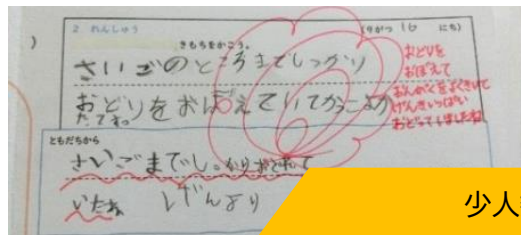 2 れんしゅう
(9がつ 16 にち)
きもちをかこう。
さいごのところまでしっかり
おどりをおぼえていてかっこよか
たですっ
おどりを
おぼえて
おんがくをよくきいて
げんきいっぱい
おどってましたね
ともだちから
さいごまでしっかりおどれて
いたね げんより
少人